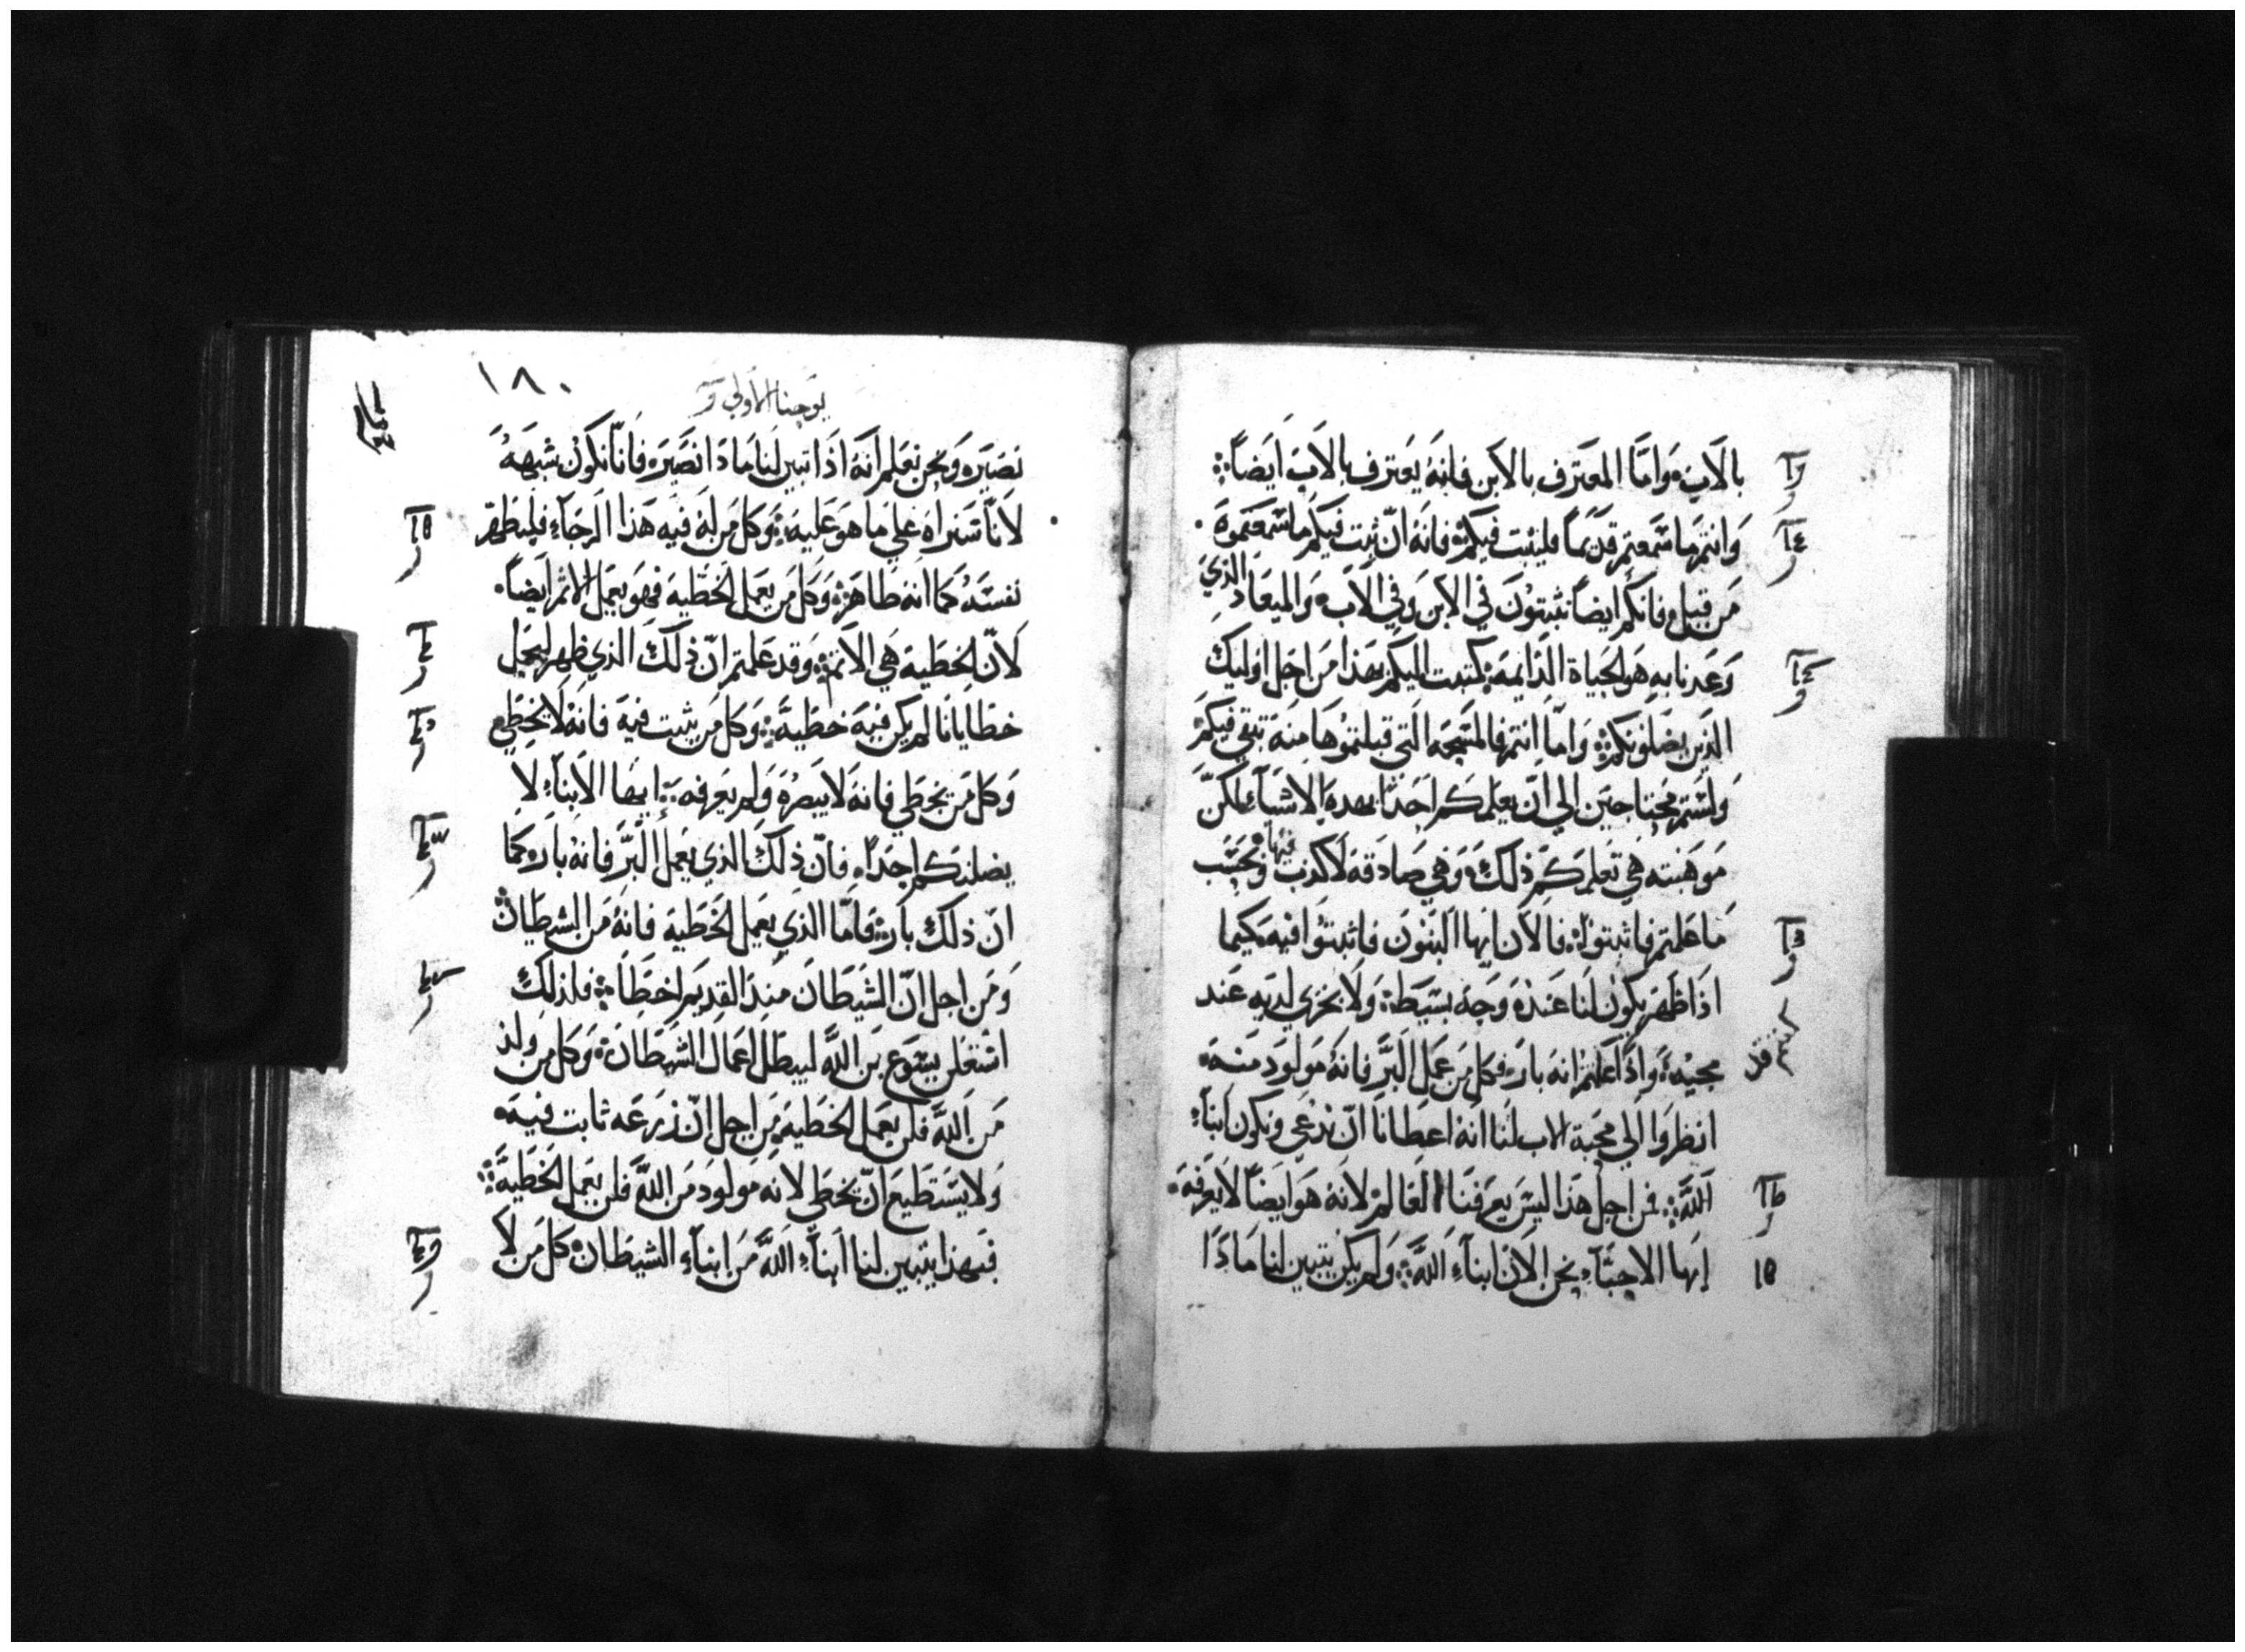 بالاب وَامَّا المعترف بالابن فانهُ يَعترف بالاب ايضاً
وَانتم ما سَمعتم قدَيماً فليثبت فيكم فانهُ انّ ثبت فيكم ما سَمعتموَه
مَن قبل فانكم ايضاً تثبتوُن في الابن وَفي الاب وَالميعَاد الذي
وَعَدنا به هوَ الحيَاة الدَايمَة كتبت اليكم بهَذا مَن اجل اوليك
الذَين يضلوَنكم وَامّا انتم فالمسَحة التي قبلتموُهَا منهَ تبقي فيكم
وَلستم محتاجين الي انّ يعلمكم احَدًا بهدهِ الاشيَآء لكنّ
مَوهَبته هي تعلمَكم ذلكَ وَهي صادَقة لا كذب فيها وَبحَسَب
مَا علمتم فاثبتوُا فالان ايها البنوُن فاثبتوُا فيه كيما
اذَا ظهَر يكوُن لنا عَندهَ وَجهَ بسيَط وَلا نخزي لديَه عَند
مجيهَ وَاذَا علمتم انهَ بار فكل مَن عمَل البرَّ فانهُ موَلوَد منهَ
كنتم قد
انظروَا الي محبة الاب لنا انهَ اعطانا انّ ندُعي وَنكون ابنآءِ
اللهَّ فمن اجل هَذا ليسَ يعَرفنا العَالم لانهَ هوَ ايضاً لا يعَرفهَ
ايَها الاحبَّآءِ نحن الان ابنآءِ اللهَّ وَلم يكن يتبين لنا مَاذَا
١٨٠
يوَحنا الاوَلي
نصَيَر وَنحن نعَلم انهَ اذَا تبين لنا مَاذَا نصَيَر فانّا نكوُن شبهَهُ
لانّا سَنراهَ عَلي ما هوَ عَليهَ وَكل مَن لهَ فيَه هَذا الرجَآءِ فليطَهّر
نفسَهُ كما انهَ طاهَر وَكل مَن يعَمل الخطيَه فهوَ يعَمل الاثم ايَضاً
لانّ الخطيَه هَي الاثم وَقد عَلمتم انّ ذلكَ الذي ظهر ليحَمل
خطايانا لم يكن فيَه خطيَّة وَكل مَن يثبت فيَه فانهَ لا يخطي
وَكل مَن يخطي فانهَ لا يبصرهُ وَلم يعَرفهَ ايها الابنآءِ لا
يضلنكم احَدًا فانّ ذلكَ الذي يعَمل البرَّ فانهُ بار كمَا
انّ ذلكَ بار فامَّا الذَي يعَمل الخطَيَة فانهُ مَن الشيطان
وَمَن اجل انّ الشيَطَان مَنذ القديَم اخطَا فلذَلكَ
استعَلن يسَوَع بن اللهَّ ليبطل اعَمال الشيَطَان وَكل مَن وَلد
مَن اللهَّ فلن يعَمل الخطيَه مَن اجل انّ زرَعَه ثابت فيَه
وَلا يسَتطيَع انّ يخطي لانهَ موَلوَد مَن اللهَّ فلن يعَمل الخطَيَّة
فبهَذا يتبين لنا ابنآءِ اللهَّ مَن ابنآءِ الشيطَان كل مَن لا